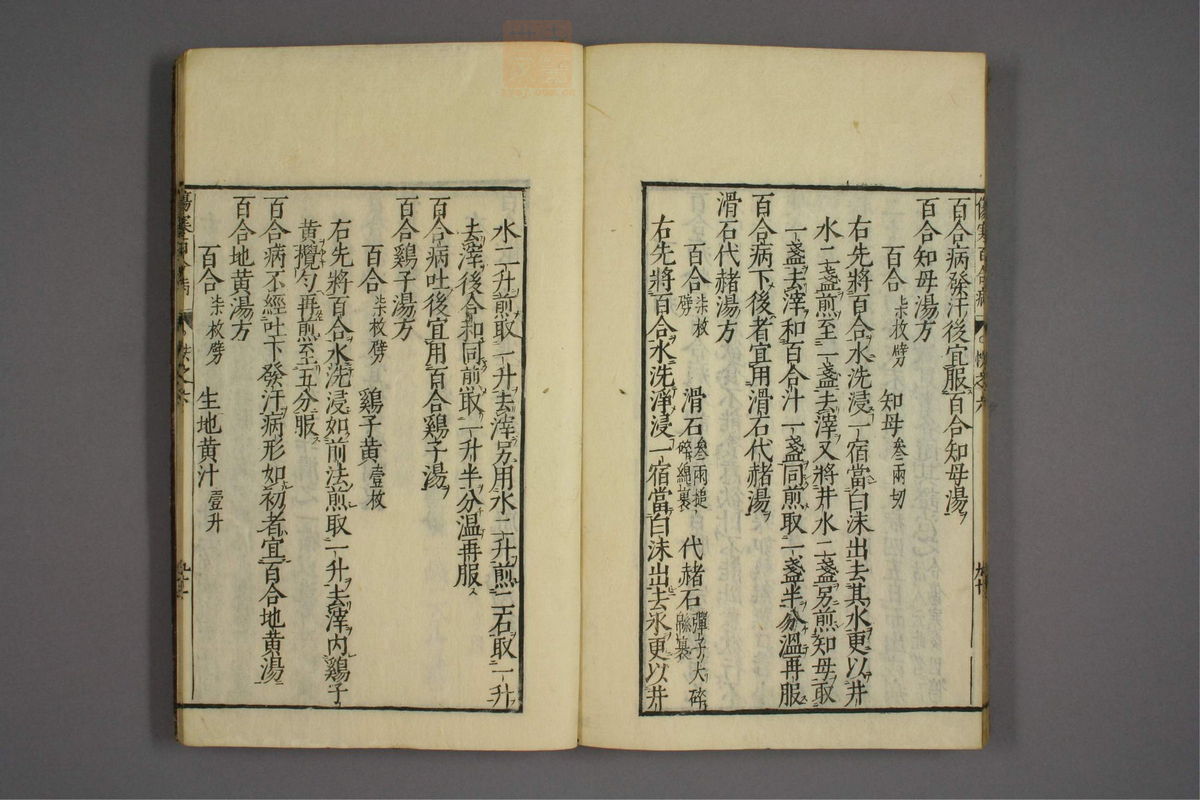 百合病發汗後宜服百合知母湯
百合知母湯方
百合 柒枚劈 知母 叄兩切
右先將百合水洗浸一宿當白沫出去其水更以井
水二盞煎至一盞去滓又將井水二盞另煎知母取
一盞去滓和百合汁一盞同煎取一盞半分溫再服
百合病下後者宜用滑石代赭湯
滑石代赭湯方
百合 柒枚劈 滑石 叄兩搥碎綿裹 代赭石 彈子大碎綿裹
右先將百合水洗淨浸一宿當白沫出去水更以井
水二升煎取一升去滓另用水二升煎二石取一升
去滓後合和同煎取一升半分溫再服
百合病吐後宜用百合鷄子湯
百合鷄子湯方
百合 柒枚劈 鷄子黃 壹枚
右先將百合水洗浸如前法煎取一升去滓內鷄子
黃攪勻再煎至五分服
百合病不經吐下發汗病形如初者宜百合地黃湯
百合地黃湯方
百合 柒枚劈 生地黃汁 壹升